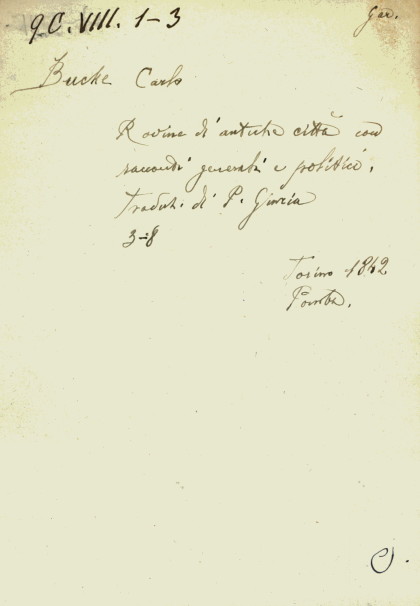 9C. VIII. 1-3
Gar.
Bucke Carlo
Rovine di antiche città con
racconti generali e politici,
Traduz. di P. Giuria
3-8
Torino 1842
Pomba.